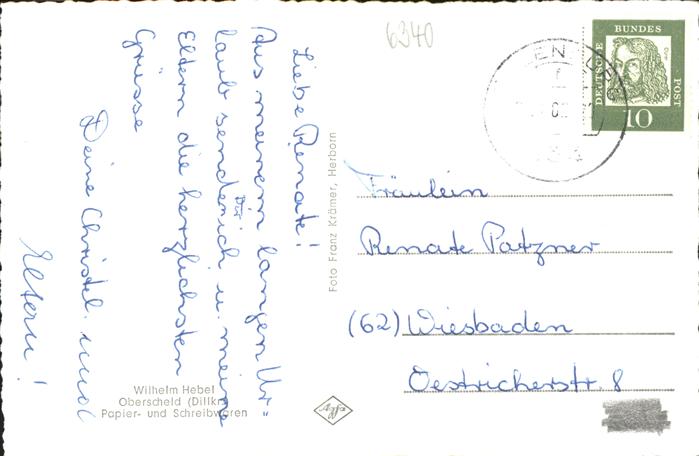 Liebe Renate!
Aus meinem langen Ur=
laub senden ich u. meine
Dir
Eltern die herzlichsten
Grüsse
Deine Christel. und
Eltern!
6340
DEUTSCHE
BUNDES
POST
10
Fräulein
Renate Patzner
(62) Wiesbaden
Oestricherstr. 8
Foto Franz Krämer, Herborn
Wilhelm Hebel
Oberscheld (Dillkr.)
Papier- und Schreibwaren
Agfa